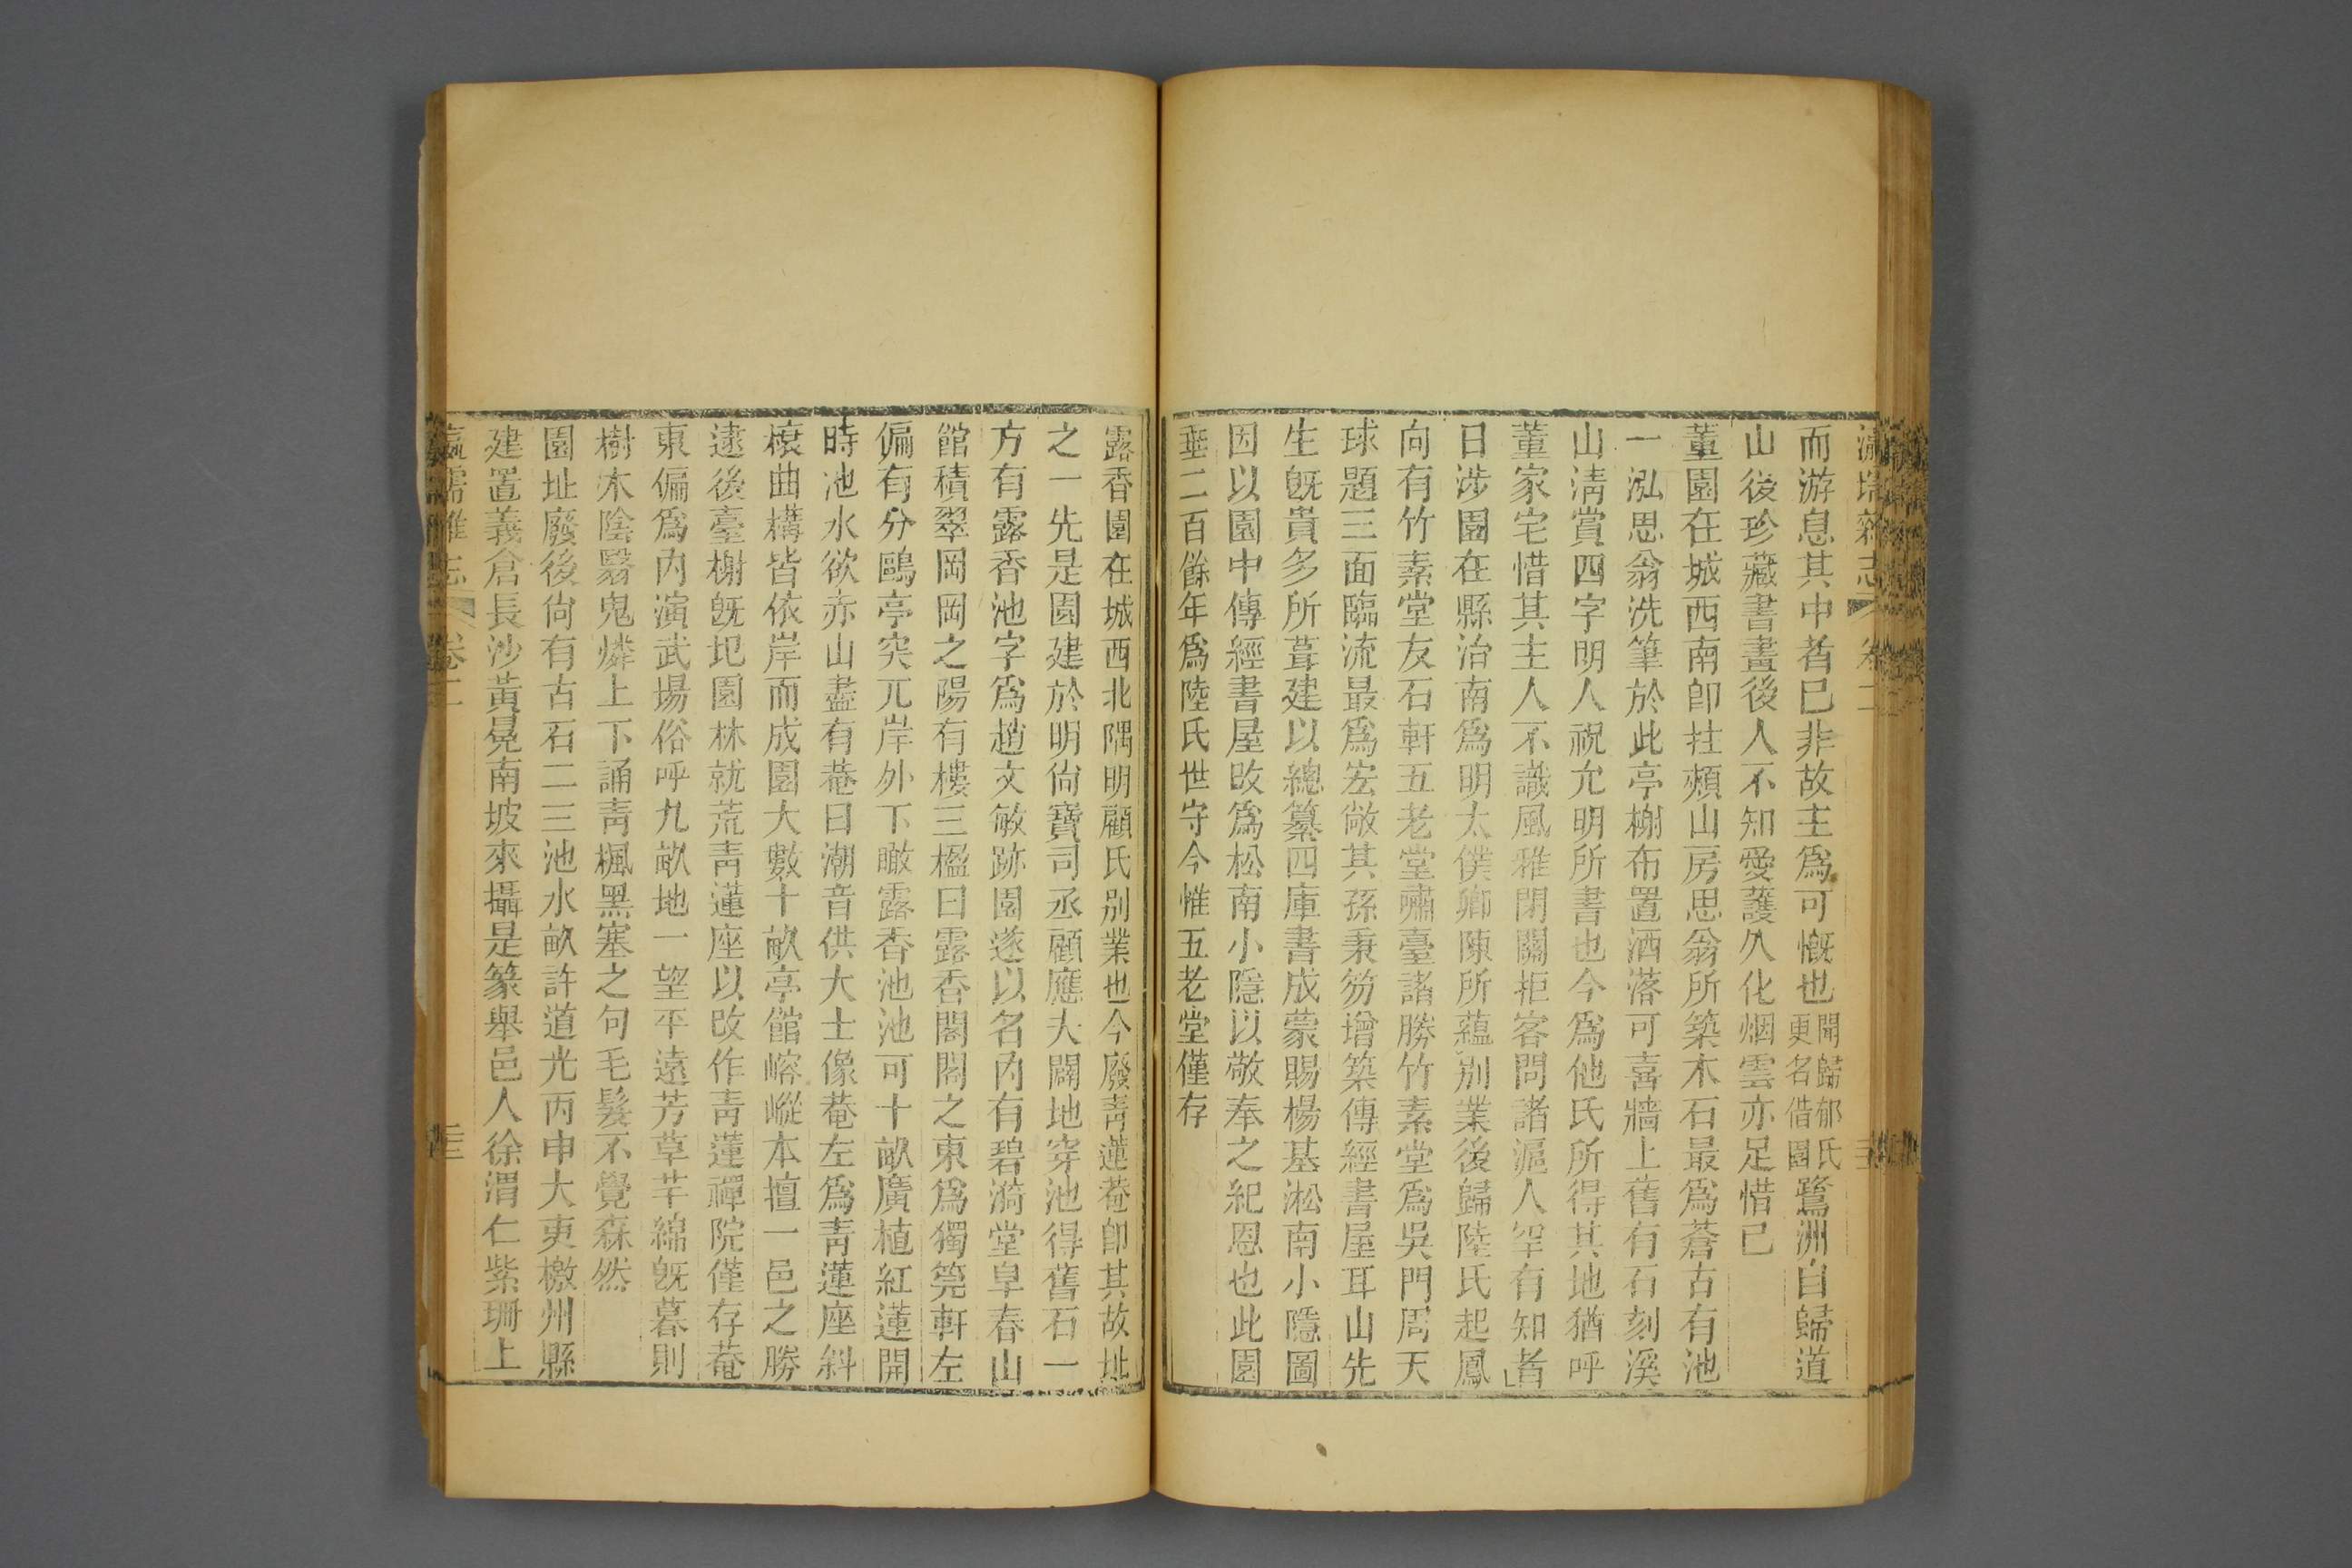 瀛壖雜志 卷二
而游息其中者已非故主爲可慨也聞歸郁氏更名借園鷺洲自歸道
山後珍藏書畫後人不知愛護久化烟雲亦足惜已
董園在城西南卽拄頰山房思翁所築木石最爲蒼古有池
一泓思翁洗筆於此亭榭布置洒落可喜牆上舊有石刻溪
山淸賞四字明人祝允明所書也今爲他氏所得其地猶呼
董家宅惜其主人不識風雅閉關拒客問諸滬人罕有知者
日涉園在縣治南爲明太僕卿陳所蘊別業後歸陸氏起鳳
向有竹素堂友石軒五老堂嘯臺諸勝竹素堂爲吳門周天
球題三面臨流最爲宏敞其孫秉笏增築傳經書屋耳山先
生旣貴多所葺建以總纂四庫書成蒙賜楊基淞南小隱圖
因以園中傳經書屋改爲松南小隱以敬奉之紀恩也此園
垂二百餘年爲陸氏世守今惟五老堂僅存
露香園在城西北隅明顧氏別業也今廢靑蓮菴卽其故址
之一先是園建於明尙寶司丞顧應夫闢地穿池得舊石一
方有露香池字爲趙文敏跡園遂以名內有碧漪堂阜春山
館積翠岡岡之陽有樓三楹曰露香閣閣之東爲獨筦軒左
偏有分鷗亭突兀岸外下瞰露香池池可十畝廣植紅蓮開
時池水欲赤山盡有菴曰潮音供大士像菴左爲靑蓮座斜
榱曲構皆依岸而成園大數十畝亭館嵱嵷本擅一邑之勝
逮後臺榭旣圯園林就荒靑蓮座以改作靑蓮禪院僅存菴
東偏爲內演武場俗呼九畝地一望平遠芳草芊綿旣暮則
樹木陰翳鬼燐上下誦靑楓黑塞之句毛髮不覺森然
園址廢後尙有古石二三池水畝許道光丙申大吏檄州縣
建置義倉長沙黃冕南坡來攝是篆舉邑人徐渭仁紫珊上
瀛壖雜志 卷二